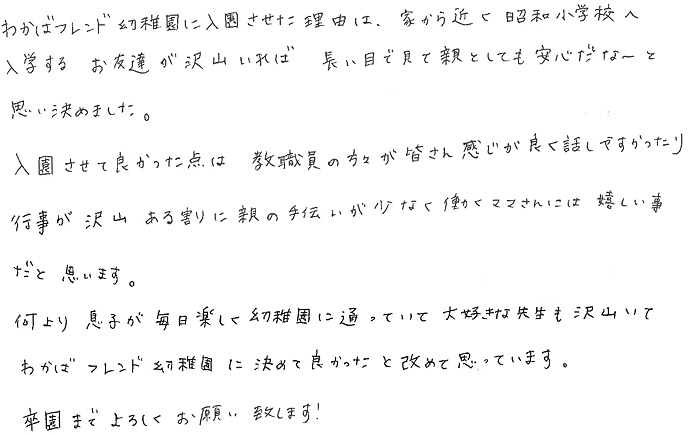 わかばフレンド幼稚園に入園させた理由は、家から近く昭和小学校へ
入学する お友達が沢山いれば 長い目で見て親としても安心だな〜と
思い決めました。
入園させて良かった点は 教職員の方々が皆さん感じが良く話しやすかったり
行事が沢山ある割に親の手伝いが少なく働くママさんには嬉しい事
だと思います。
何より息子が毎日楽しく幼稚園に通っていて大好きな先生も沢山いて
わかばフレンド幼稚園に決めて良かったと改めて思っています。
卒園までよろしくお願い致します!